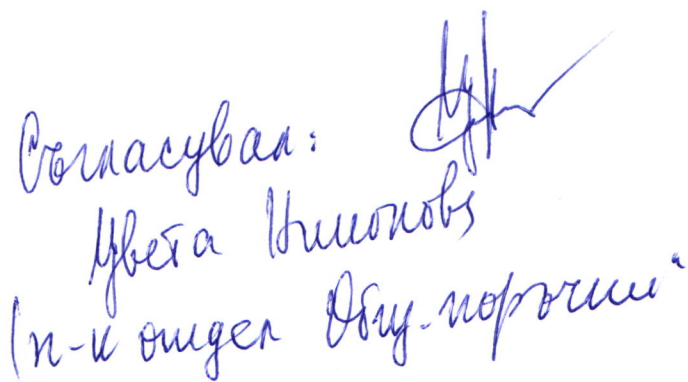 Съгласувал:
Цвета Николова
(н-к отдел Общ. поръчки"